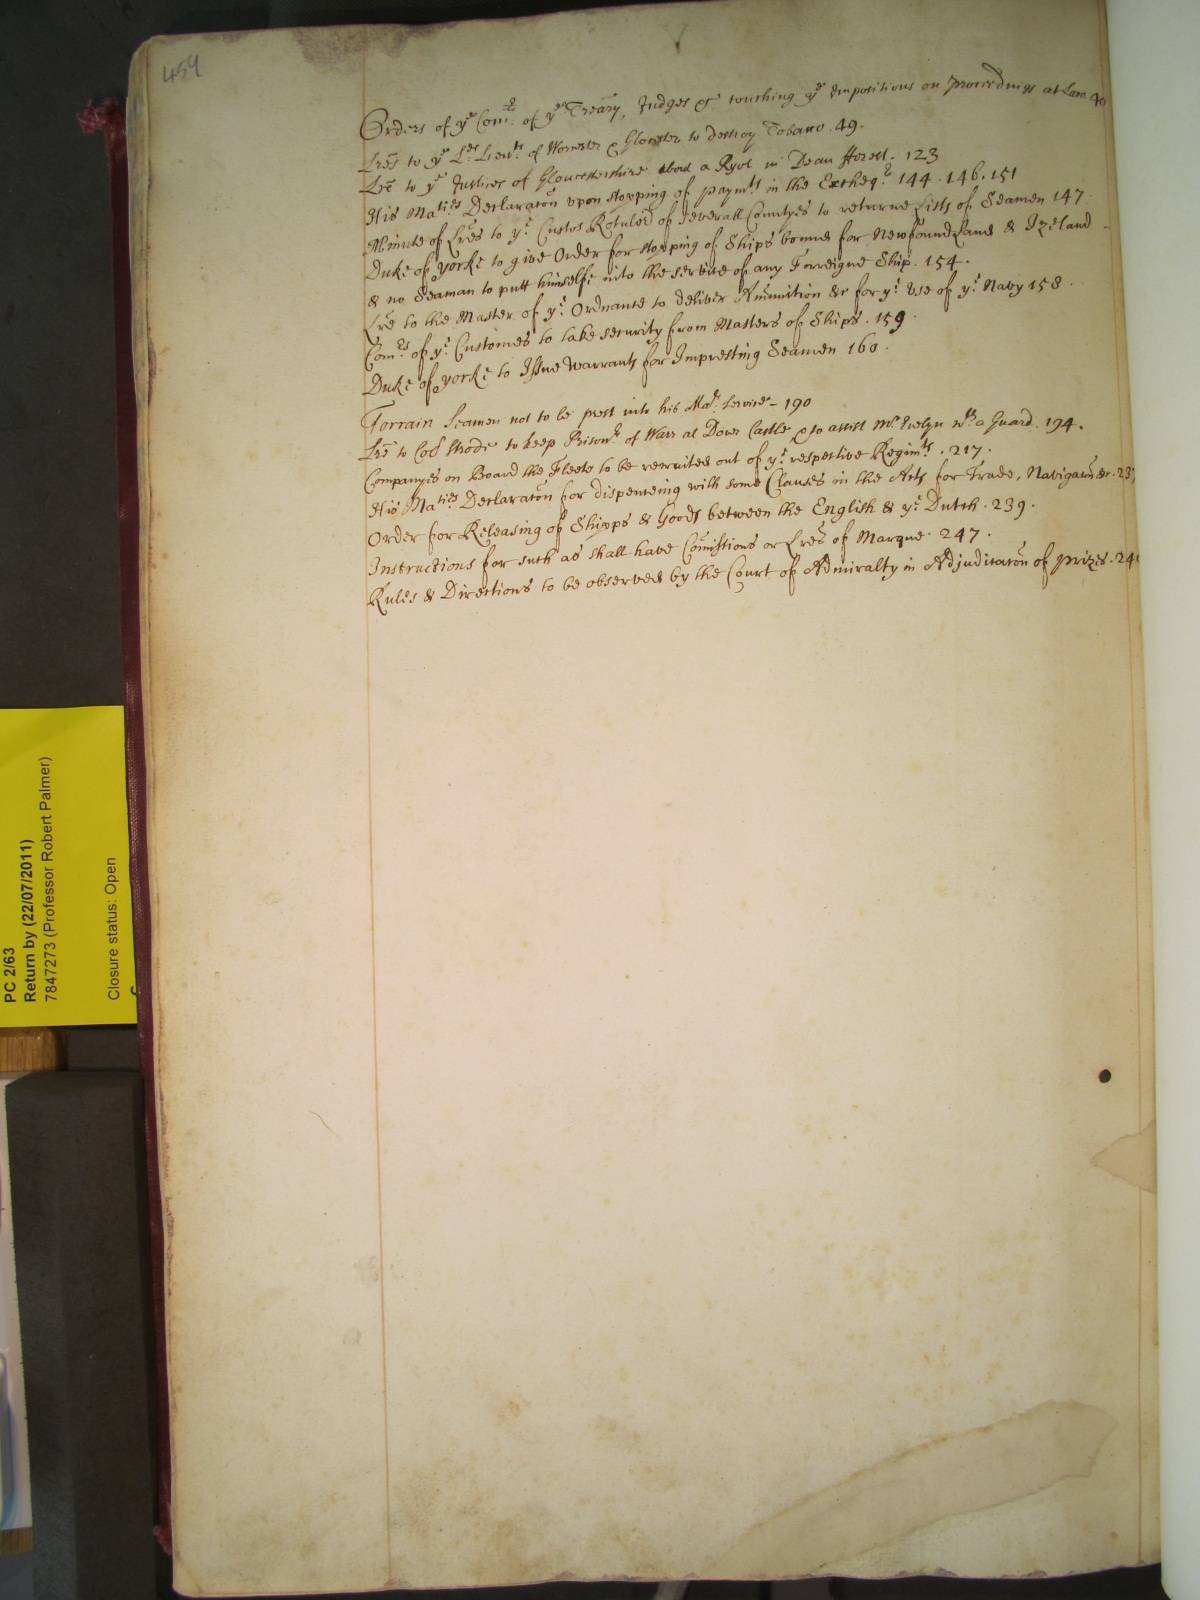 454
Orders of ye Comrs. of ye Treāry, Judges &c touching ye Impositions on proceedings at Law. 40
Lr̄es to ye Lds Lieuts. of Worcester & Glocester to destroy Tobacco. 49.
Lr̄e to ye Justices of Gloucestershire about a Ryot in Dean Forest. 123
His Maties Declaratōn upon stopping of paymts in the Excheqr 144. 146. 151
Minute of Lr̄es to ye Custos Rotulor̄ of severall Countyes to returne Lists of Seamen 147
Duke of yorke to give Order for stopping of Ships bound for Newfoundland & Izeland
& no Seaman to putt himselfe into the service of any Forreigne Ship. 154.
Lr̄e to the Master of ye Ordnance to deliver Am̄unition &c for ye use of ye Navy 158
Comrs of ye Customes to take security from Masters of Ships. 159.
Duke of yorke to Issue Warrants for Impresting Seamen 160.
Forrain Seamen not to be prest into his Mats Service - 190
Lr̄e to Coll Strode to keep Prisonrs of Warr at Dover Castle & to assist Mr Evelyn wth a Guard. 194.
Companyes on Board the Fleete to be recruited out of ye respective Regimts. 217.
His Maties Declaratōn for dispenceing with some Clauses in the Acts for Trade, Navigatōn &c. 23
Order for Releasing of Shipps & Goods between the English & ye Dutch. 239.
Instructions for such as shall have Com̄issions or Lr̄es of Marque. 247.
Rules & Directions to be observed by the Court of Admiralty in Adjudicatōn of prizes. 24
PC 2/63
Return by (22/07/2011)
7847273 (Professor Robert Palmer)
Closure status: Open